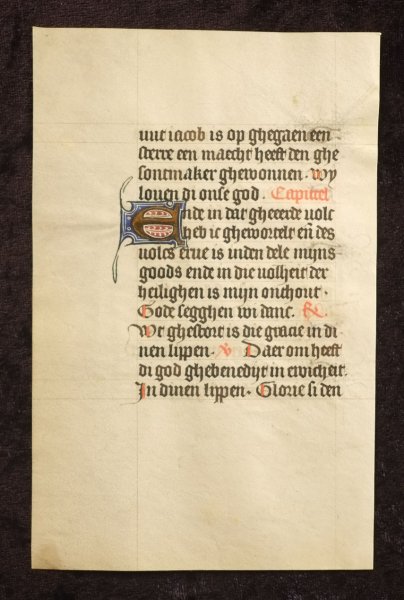 wut iacob is op ghegaen een
sterre een maecht heeft den ghe
sontmaker ghewonnen. Wy
louen di onse god. Capittel
Ende in dat gheeerde uolc
heb ic ghewortelt en̄ des
uolcs erue is inden dele mijns
goods ende in die uolheit der
heilighen is mijn onthout.
Gode segghen wi danc. R̃
Wt ghestort is die gracie in di
nen lippen. V Daer om heeft
di god ghebenedijt in ewicheit.
In dinen lippen. Glorie si den